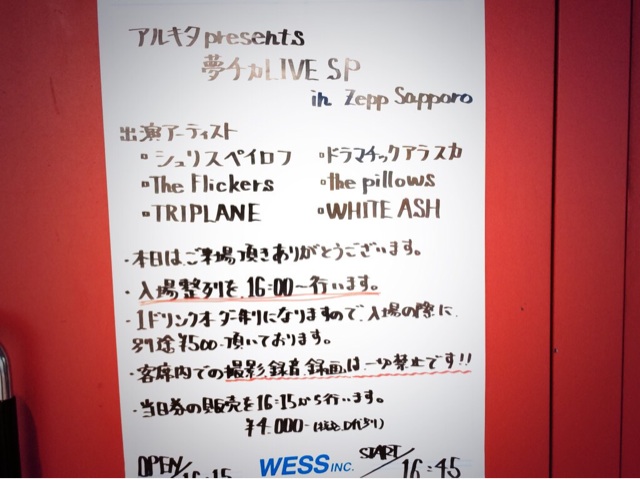 アルキタpresents
夢チカLIVE SP
in Zepp Sapporo
出演アーティスト
・シュリスペイロフ ・ドラマチックアラスカ
・The Flickers ・the pillows
・TRIPLANE ・WHITE ASH
・本日はご来場頂きありがとうございます。
・入場整列を16:00〜行います。
・1ドリンクオーダー制になりますので、入場の際に
別途¥500-頂いております。
・客席内での撮影、録音、録画は一切禁止です!!
・当日券の販売を16:15から行います。
¥4,000-(税込、Dありり)
OPEN/16:15 WESS INC. START/16:45